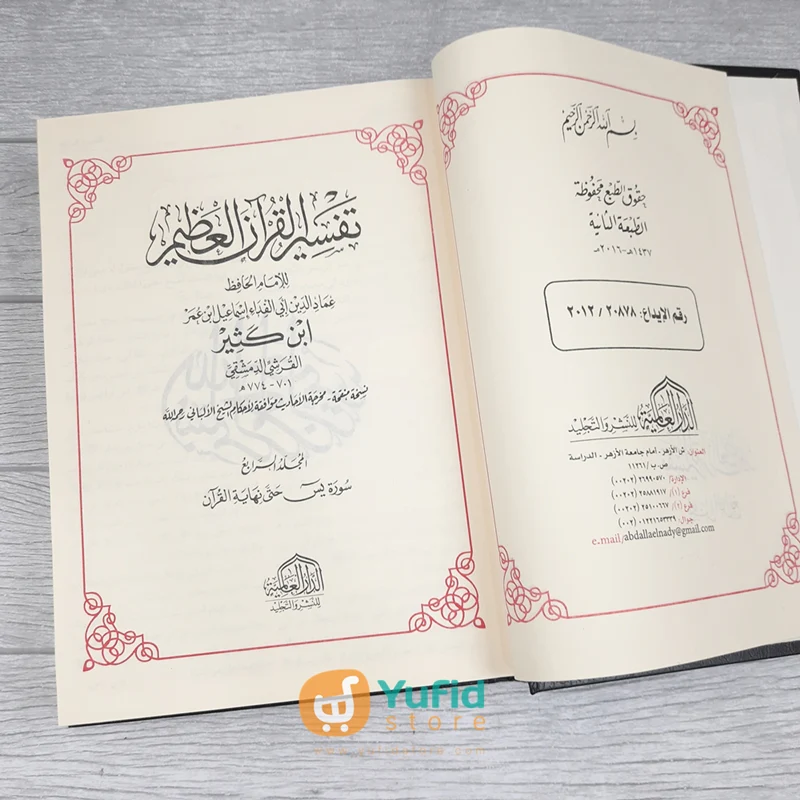 تفسير القرآن العظيم
للإمام الحافظ
عماد الدين أبي الفداء إسماعيل ابن عمر
ابن كثير
القرشي الدمشقي
٧٠١ - ٧٧٤ هـ
نسخة منقحة - مخرجة الأحاديث موافقة لأحكام الشيخ الألباني رحمه الله
المجلد الرابع
سورة يس حتى نهاية القرآن
الدار العالمية
للنشر والتجليد
بسم الله الرحمن الرحيم
حقوق الطبع محفوظة
الطبعة الثانية
١٤٣٧هـ - ٢٠١٦مـ
رقم الإيداع: ٢٠٨٧٨ / ٢٠١٢
الدار العالمية للنشر والتجليد
العنوان: ش الأزهر - أمام جامعة الأزهر - الدراسة
ص . ب / ١١٢٦١
الإدارة/ ٢٦٩٩٠٥٧٠ (٠٠٢٠٢)
فرع (١)/ ٢٥٨٨١٩١٧ (٠٠٢٠٢)
فرع (٢)/ ٢٥١٠٠٦٦٧ (٠٠٢٠٢)
جوال: ٠١٢٢١٦٥٣٣٣٩ (٠٠٢)
e.mail/abdallaelnady@gmail.com
Yufid
store